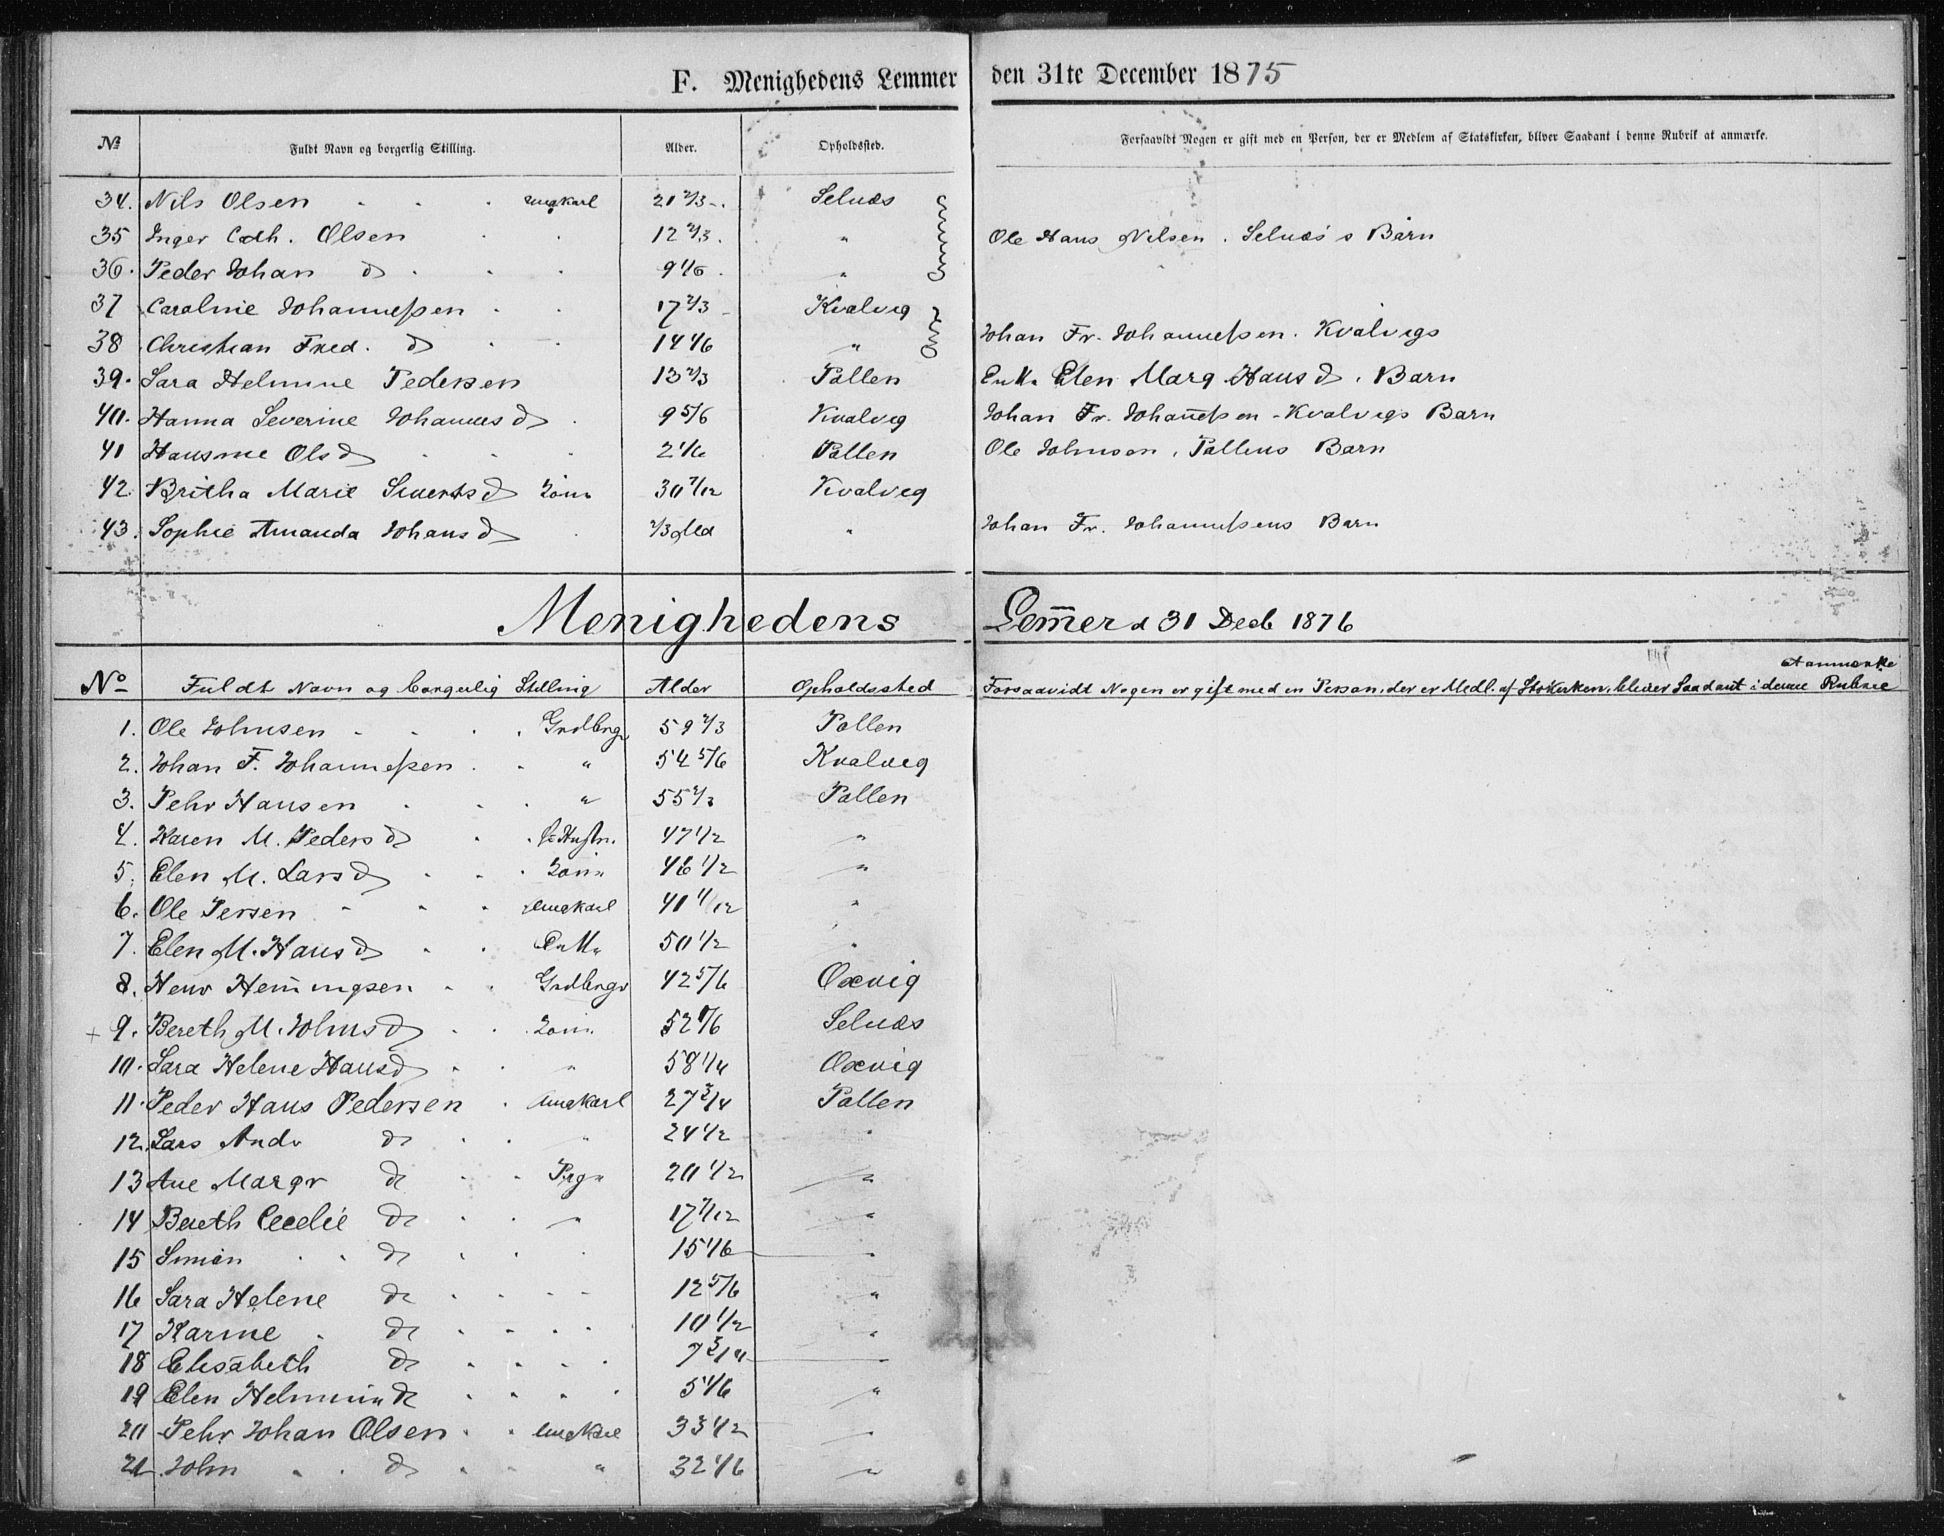 F. Menighedens Lemmer den 31te December 1875
No Fuldt Navn og borgerlig Stilling. Alder. Opholdssted. Forsaavidt Nogen er gift med en Person, der er Medlem af Statskirken, bliver Saadant i denne Rubrik at anmærke.
34. Nils Olsen ungkarl 21 2/3 Selnæs
35 Inger Cath. Olsen 12 2/3 " Ole Hans Nilsen. Selnæs's Barn
36. Peder Johan do 9 1/6 "
37 Caroline Johannessen 17 2/3 Kvalvig
38 Christian Fred. do 14 1/6 " Johan Fr. Johannessen. Kvalvigs
39. Sara Helmine Pedersen 13 2/3 Pollen Enke Elen Marg Hansd. Barn
40. Hanna Severine Johannesd 9 5/6 Kvalvig Johan Fr. Johañessen - Kvalvigs Barn
41 Hansine Olsd 2 1/6 Pollen Ole Johnsen, Pollens Barn
42 Britha Marie Sivertsd Kone 30 7/12 Kvalvig
43. Sophie Amanda Johansd 2/3 gl " Johan Fr. Johannessens Barn
Menighedens Lem̄er d 31 Decb 1876
No Fuldt Navn og borgerlig Stilling Alder Opholdssted Forsaavidt Nogen er gift med en Person, der er Medl. af Stskirken, bliver Saadant i denne Rubrik Aanmærke
1. Ole Johnsen Grdbrgr 59 2/3 Pollen
2. Johan F. Johannessen " 54 5/6 Kvalvig
3. Pehr Hansen " 55 2/3 Pollen
4. Karen M. Pedersd Hustr. 47 1/2 "
5. Elen M. Larsd Kone 46 1/2 "
6. Ole Persen Ungkarl 40 1/12 "
7. Elen M. Hansd Enke 50 1/2 "
8. Henr Hem̄ingsen Grdbrgr 42 5/6 Oxvig
+ 9. Bereth M. Johnsd Kone 52 1/6 Selnæs
10. Sara Helene Hansd " 58 1/4 Oxvig
11. Peder Hans Pedersen Ungkarl 27 3/4 Pollen
12. Lars Andr do " 24 1/2 "
13 Ane Margr do Pige 20 1/2 "
14 Bereth Cecelie do " 17 7/12 "
15 Simon do 15 1/6 "
16 Sara Helene do 12 5/6 "
17 Karine do 10 1/2 "
18 Elisabeth do 7 3/4 "
19 Elen Helmine do 5 1/6 "
20 Pehr Johan Olsen Ungkarl 33 1/2 "
21 John do " 32 1/6 "